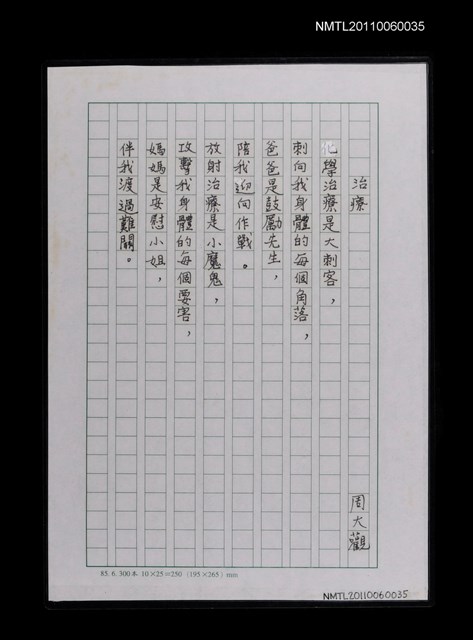 NMTL20110060035
治療
周大觀
化學治療是大刺客，
刺向我身體的每個角落，
爸爸是鼓勵先生，
陪我迎向作戰。
放射治療是小魔鬼，
攻擊我身體的每個要害，
媽媽是安慰小姐，
伴我渡過難關。
85. 6. 300本 10×25=250 (195×265) mm
NMTL20110060035